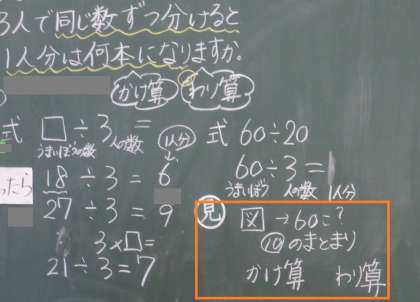 3人で同じ数ずつ分けると
1人分は何本になりますか。
かけ算 わり算
式 □÷3 =
うまいぼうの数 人の数 1人分
ったら
18÷3=6
27÷3=9
3×□=
21÷3=7
式 60÷20
60÷3=
うまいぼう 人の数 1人分
見
図→60こ?
⑩のまとまり
かけ算 わり算